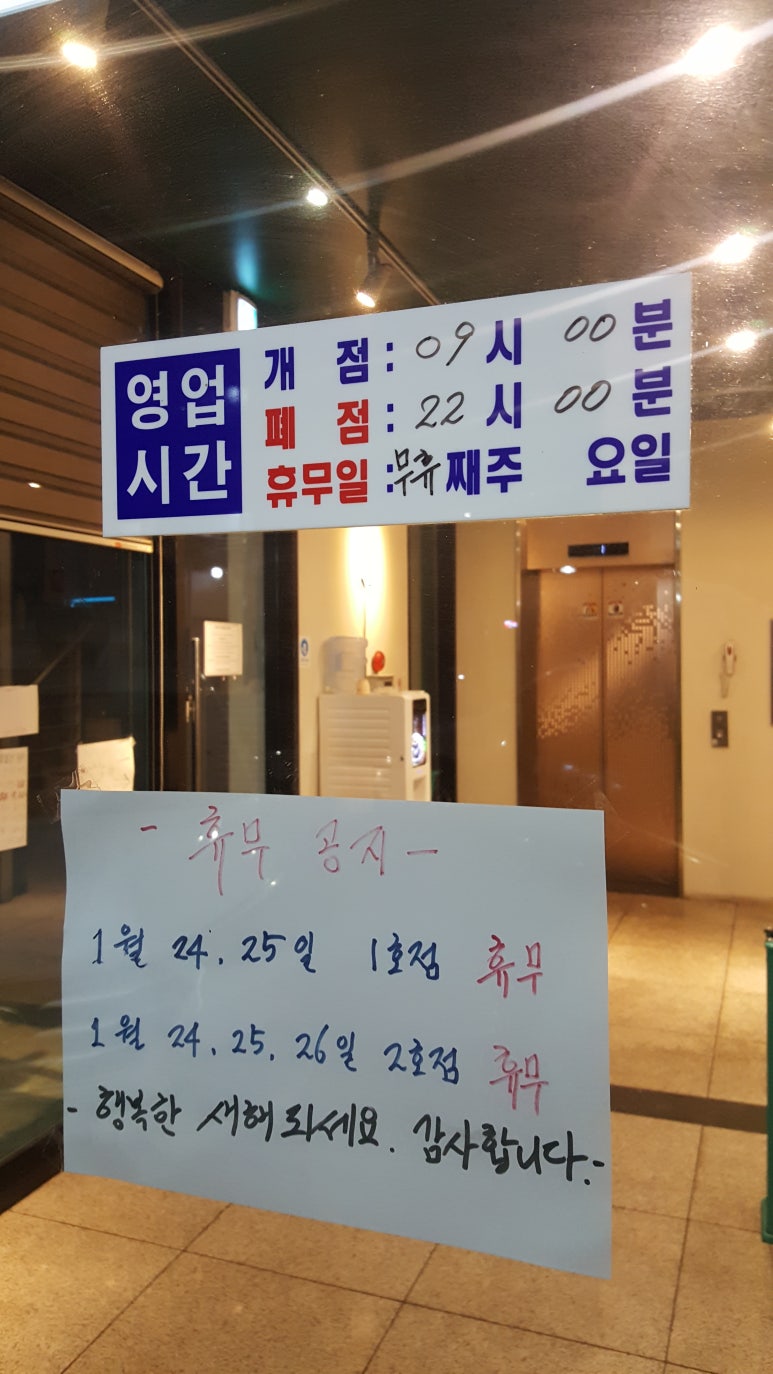 영업
시간
개 점 : 09 시 00 분
폐 점 : 22 시 00 분
휴무일 : 무휴 째주 요일
- 휴무 공지 -
1월 24. 25일 1호점 휴무
1월 24. 25. 26일 2호점 휴무
- 행복한 새해 되세요. 감사합니다. -